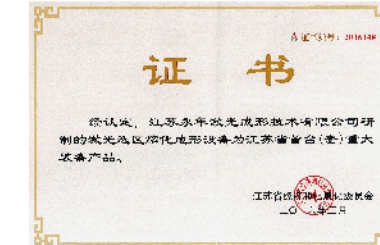 证书
经认定，江苏永年激光成形技术有限公司研
制的激光选区熔化成形设备为江苏省首台(套)重大
装备产品。
江苏省经济和信息化委员会